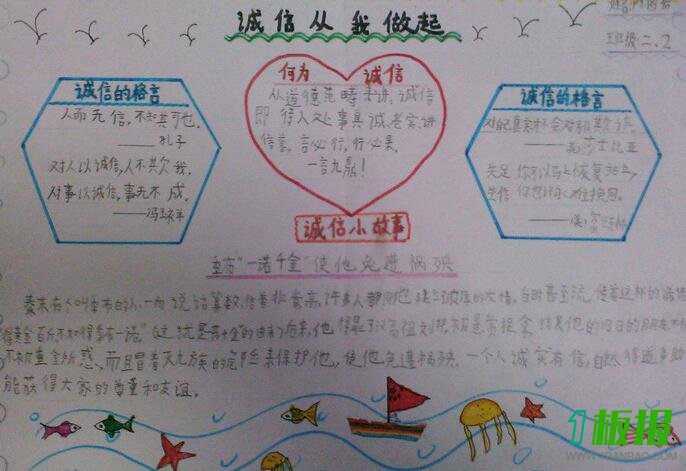 诚信从我做起
班级:二.2
诚信的格言
人而无信,不知其可也。
——孔子
对人以诚信,人不欺我,
对事以诚信,事无不成。
——冯玉祥
何为 诚信
从道德范畴来讲,诚信
即待人处事真诚、老实、讲
信誉,言必行,行必果,
一言九鼎!
诚信的格言
——莎士比亚
失足,你可以马上恢复站立,
失信,你也许永难挽回。
诚信小故事
季布"一诺千金"使他免遭祸殃
秦末有个叫季布的人,一向说话算数,信誉非常高,许多人都同他建立了浓厚的友情。当时甚至流传着这样的谚语
得黄金百斤,不如得季布一诺。"这就是一诺千金的由来)后来,他得罪了汉高祖刘邦,被悬赏捉拿。结果他的旧日的朋友不仅
不被重金所惑,而且冒着灭九族的危险来保护他,使他免遭祸殃。一个人诚实有信,自然得道多助
能获得大家的尊重和友谊。
1板报
WWW.1BANBAO.COM